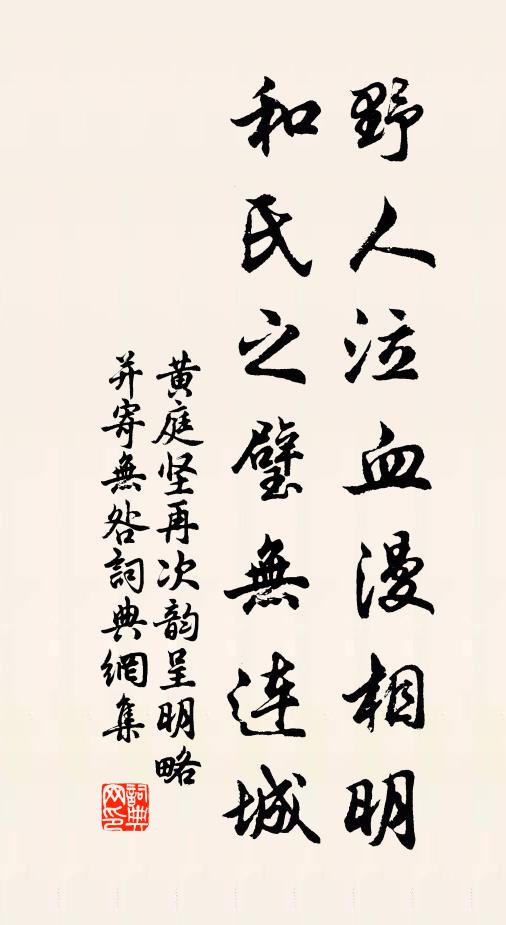 野人泣血漫相明
和氏之璧無连城
黄庭坚再次韵呈明略
并寄無咎詞典網集
詞典网印